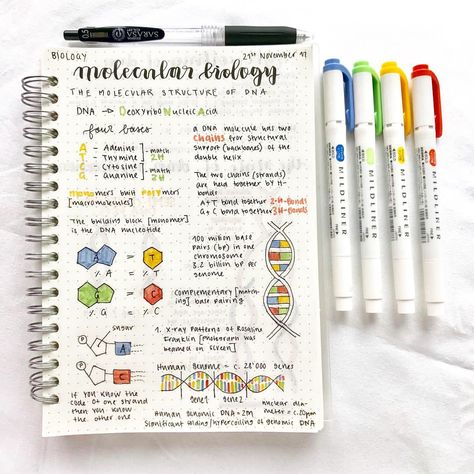 0.5
SARASA
BIOLOGY
21st November 17
molecular biology
THE MOLECULAR STRUCTURE OF DNA
DNA → DeoxyriboNucleicAcid
four bases
A - Adenine
T - Thymine
C - Cytosine
G - Guanine
match
2H
match
3H
a DNA molecule has two
chains for structural
support (backbones) of the
double helix
The two chains (strands)
are held together by H-
bonds
A+T bond together 2-H-Bonds
G+C bond together 3H-Bonds
monomers built polymers
[macromolecules]
The building block [monomer]
is the DNA nucleotide
A = T
% A = % T
G = C
% G = % C
100 million base
pairs (bp) in one
chromosome
3.2 billion bp per
genome
Complementary [match-
ing] base pairing
sugar
P
A
P
C
1. X-ray patterns of Rosalind
Franklin [photograph was
beamed on screen]
Human Genome = c. 28'000 genes
gene1 gene2
If you know the
code of one strand
then you know
the other one.
nuclear dia-
meter = c.
Human genomic DNA = 2m
Significant folding/hypercoiling of genomic DNA
MILDLINER
MILDLINER
MILDLINER
MILDLINER